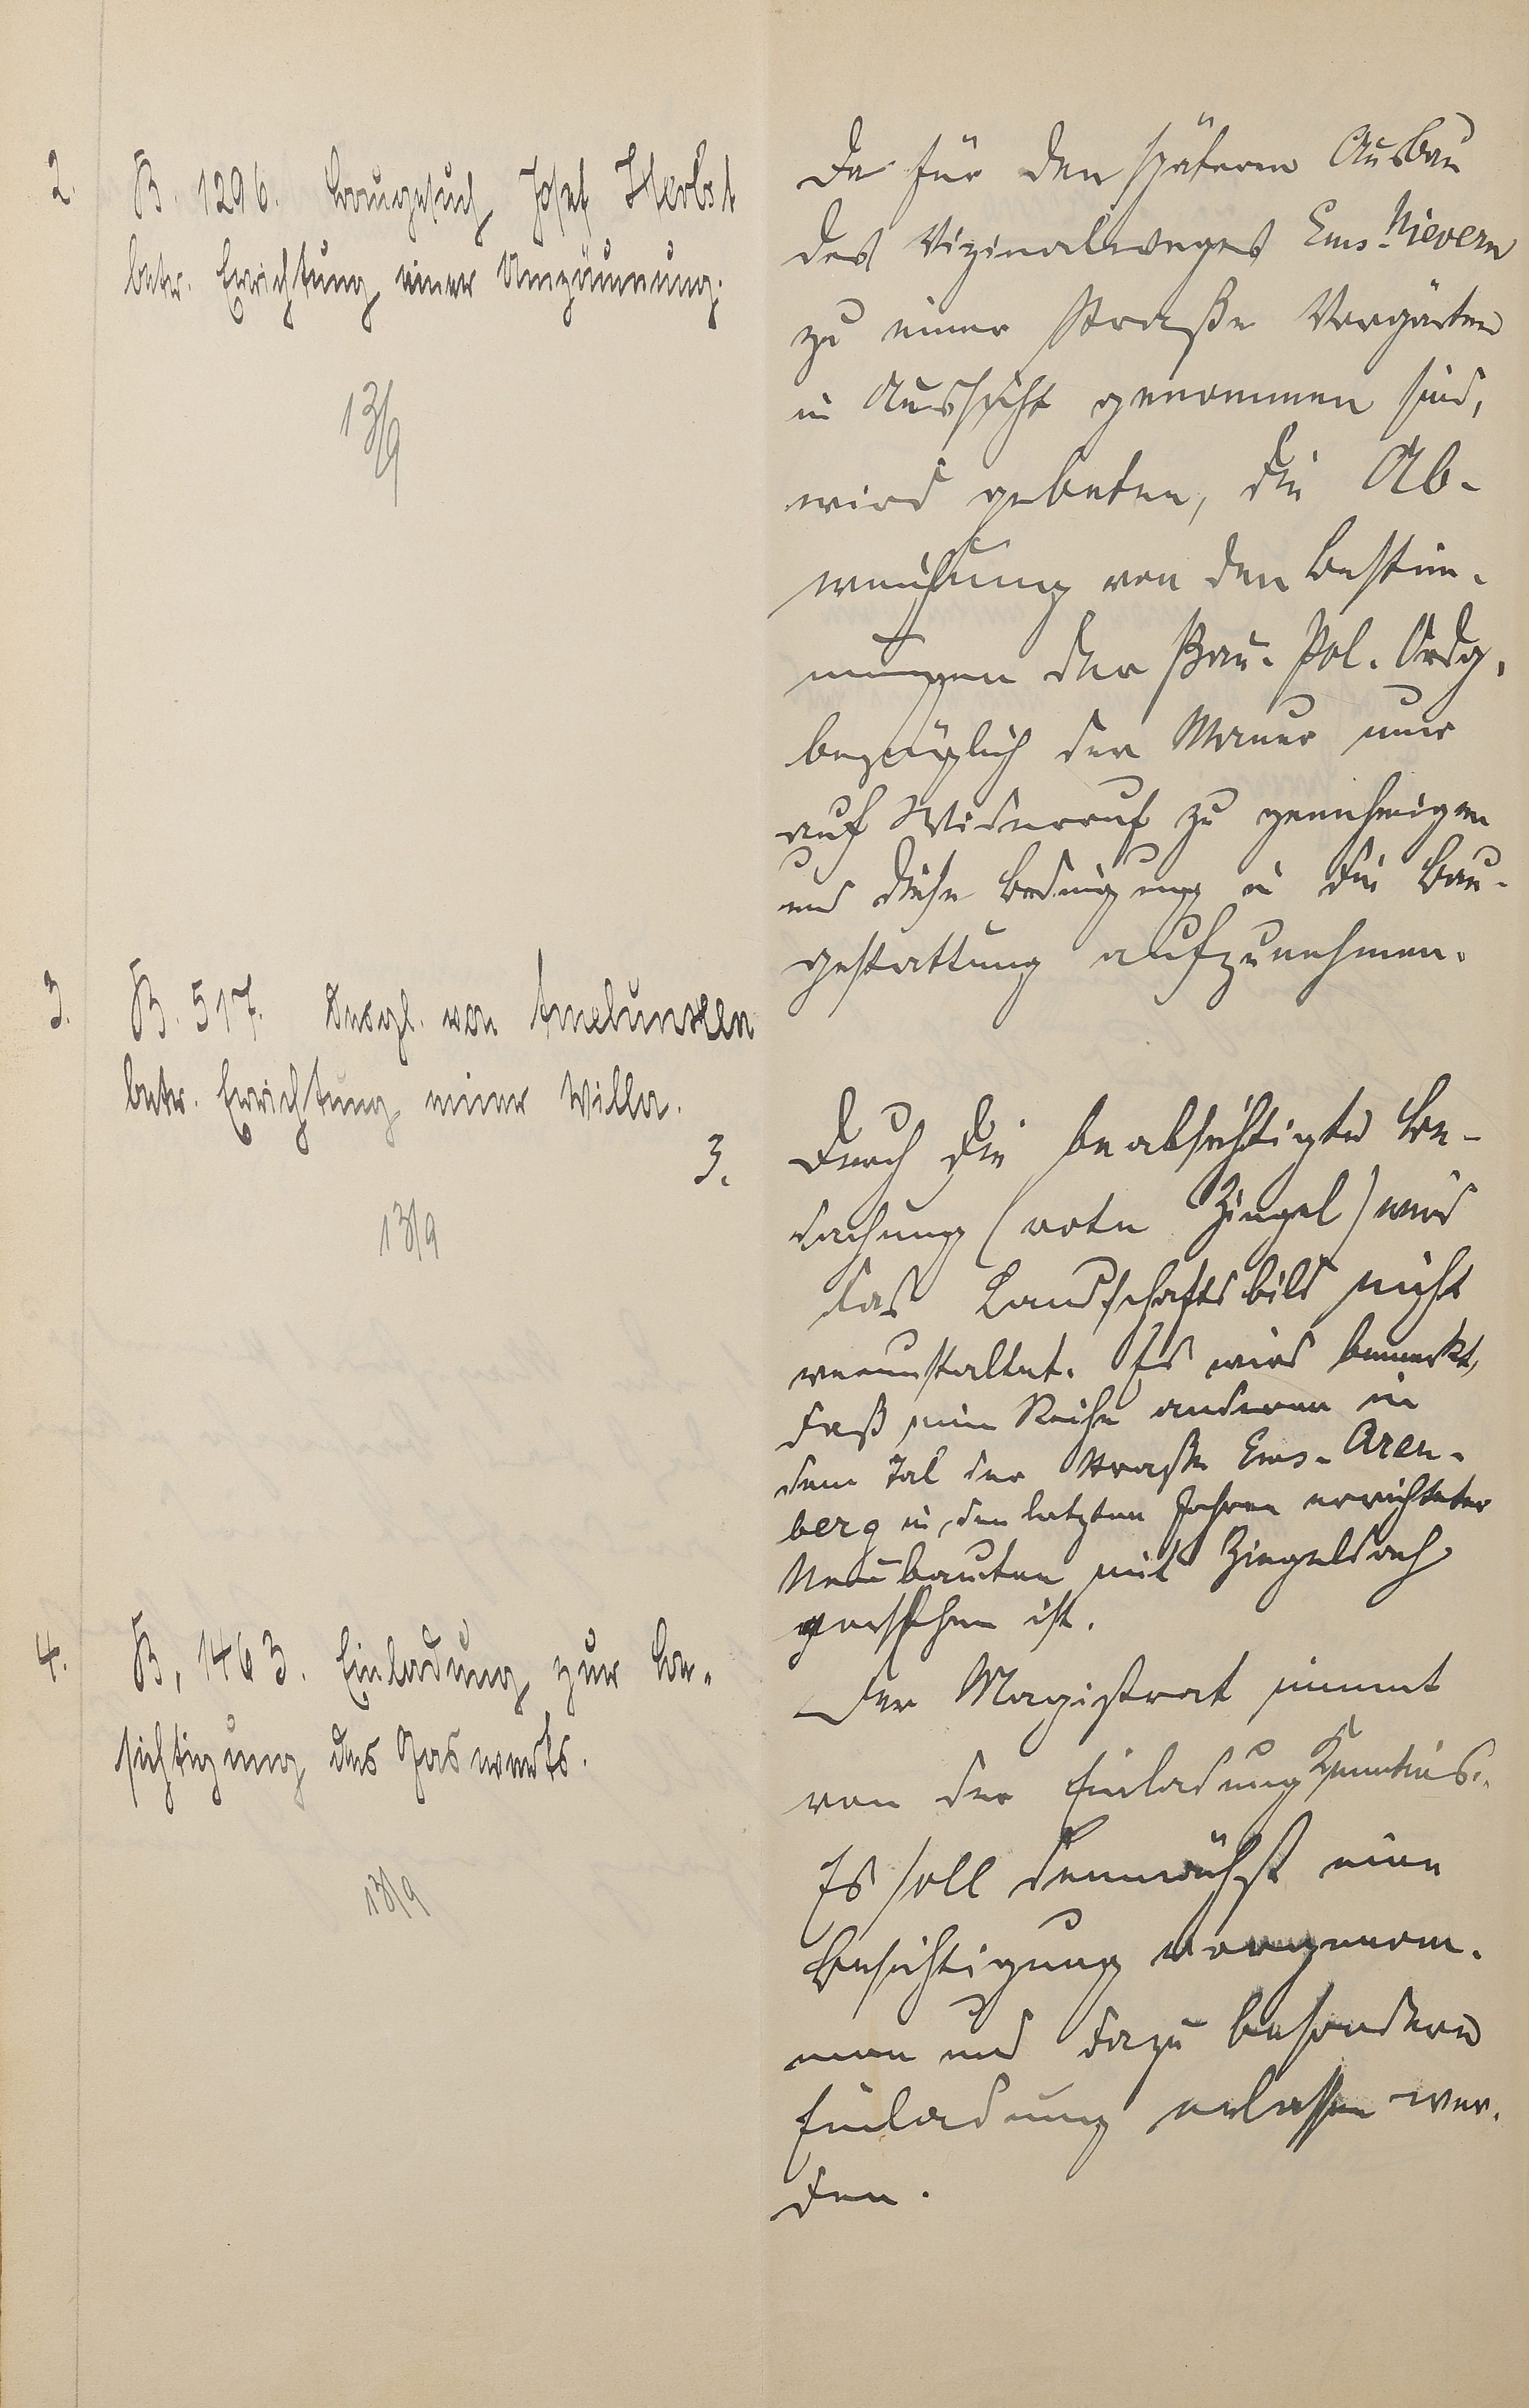 2.
B. 1296. Baugesuch Josef Herbst
betr. Errichtung einer Umzäunung.
13/9
Da für den späteren Ausbau
des Vizinalweges Ems-Nievern
zu einer Straße Vorgärten
in Aussicht genommen sind,
wird gebeten, die Ab-
weichung von den Bestim-
mungen der Bau-Pol. Ordg.
bezüglich der Mauer nur
auf Widerruf zu genehmigen
und diese Bedingung in die Bau-
gestattung aufzunehmen.
3.
B. 517. Desgl. von Amelunxen
betr. Errichtung einer Villa.
13/9
3.
Durch die beabsichtigte Be-
dachung (rote Ziegel) wird
das Landschaftsbild nicht
verunstaltet. Es wird bemerkt,
daß eine Reihe anderer in
dem Tal der Straße Ems-Aren-
berg in den letzten Jahren errichteter
Neubauten mit Ziegeldach
versehen ist.
4.
B. 1463. Einladung zur Be-
sichtigung des Gaswerks.
13/9
Der Magistrat nimmt
von der Einladung Kenntnis.
Es soll demnächst eine
Besichtigung vorgenom-
men und dazu besondere
Einladung erlassen wer-
den.